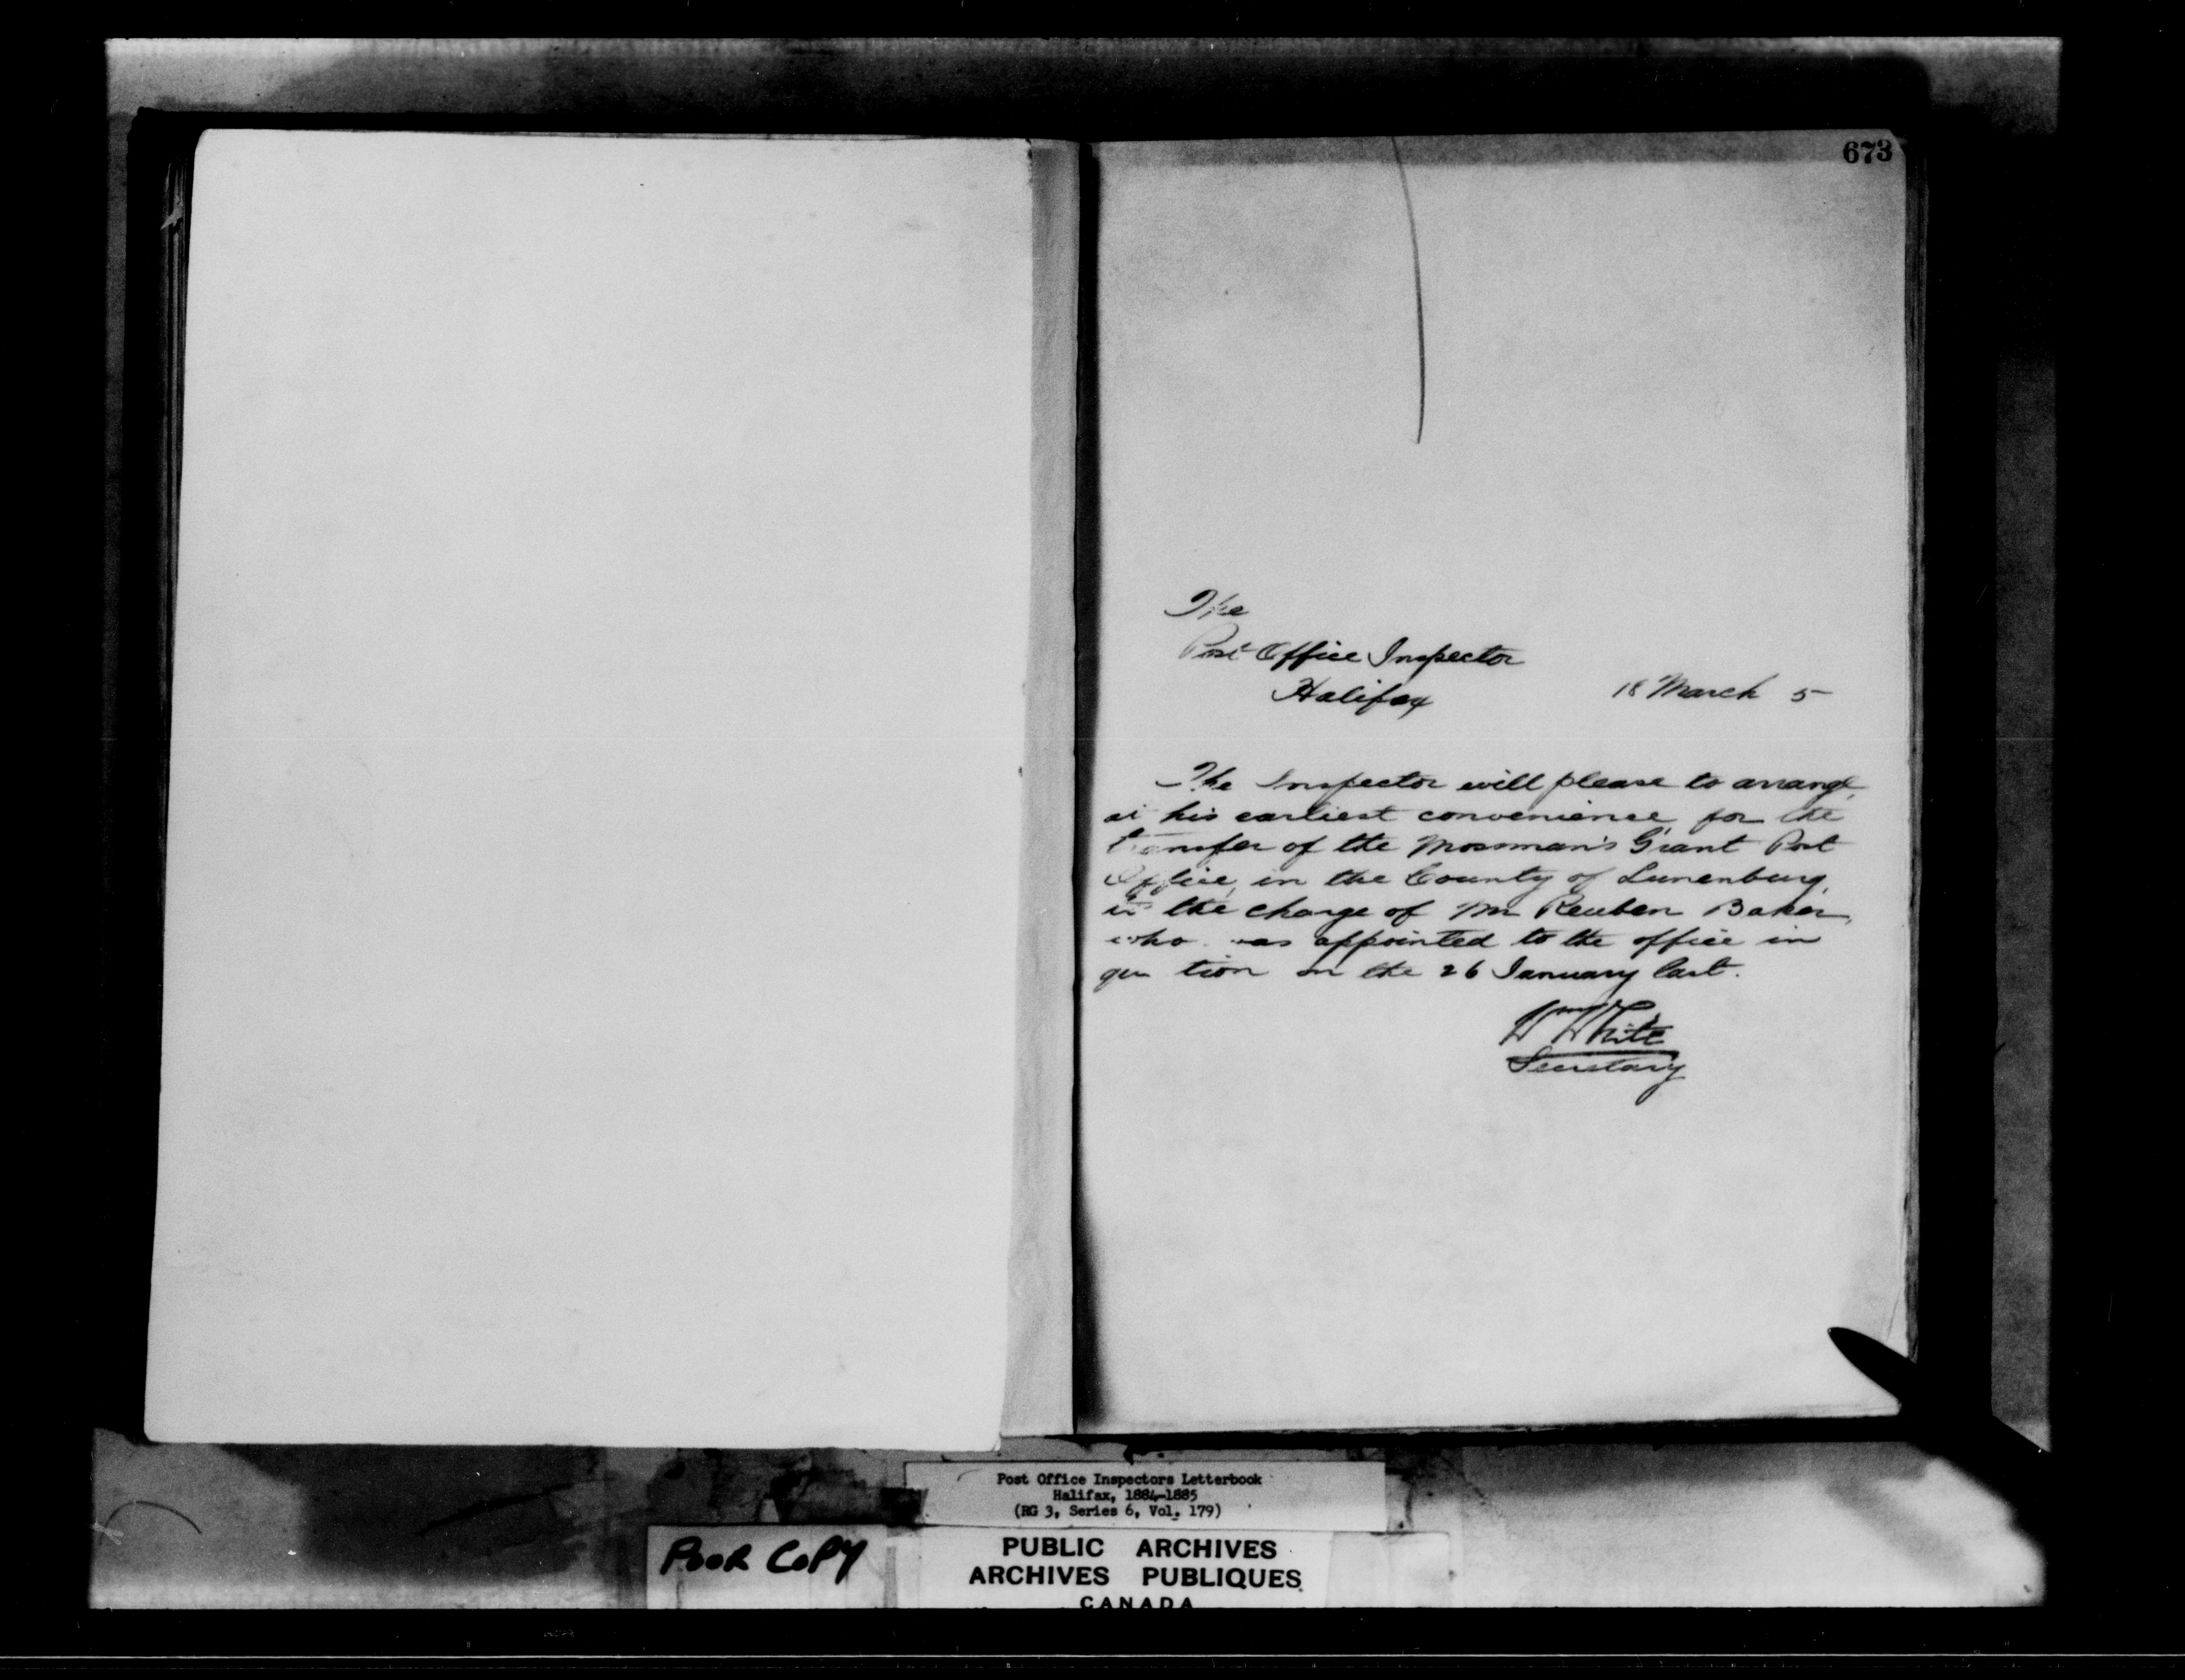 673
The
Post Office Inspector
Halifax
18 March 5
The Inspector will please to arrange,
at his earliest convenience for the
transfer of the Mossman's Grant Post
Office, in the County of Lunenburg,
to the charge of Mr Reuben Baker,
who was appointed to the office in
question on the 26 January last.
Wm White
Secretary
Post Office Inspectors Letterbook
Halifax, 1884-1885
(RG 3, Series 6, Vol. 179)
POOR COPY
PUBLIC ARCHIVES
ARCHIVES PUBLIQUES
CANADA